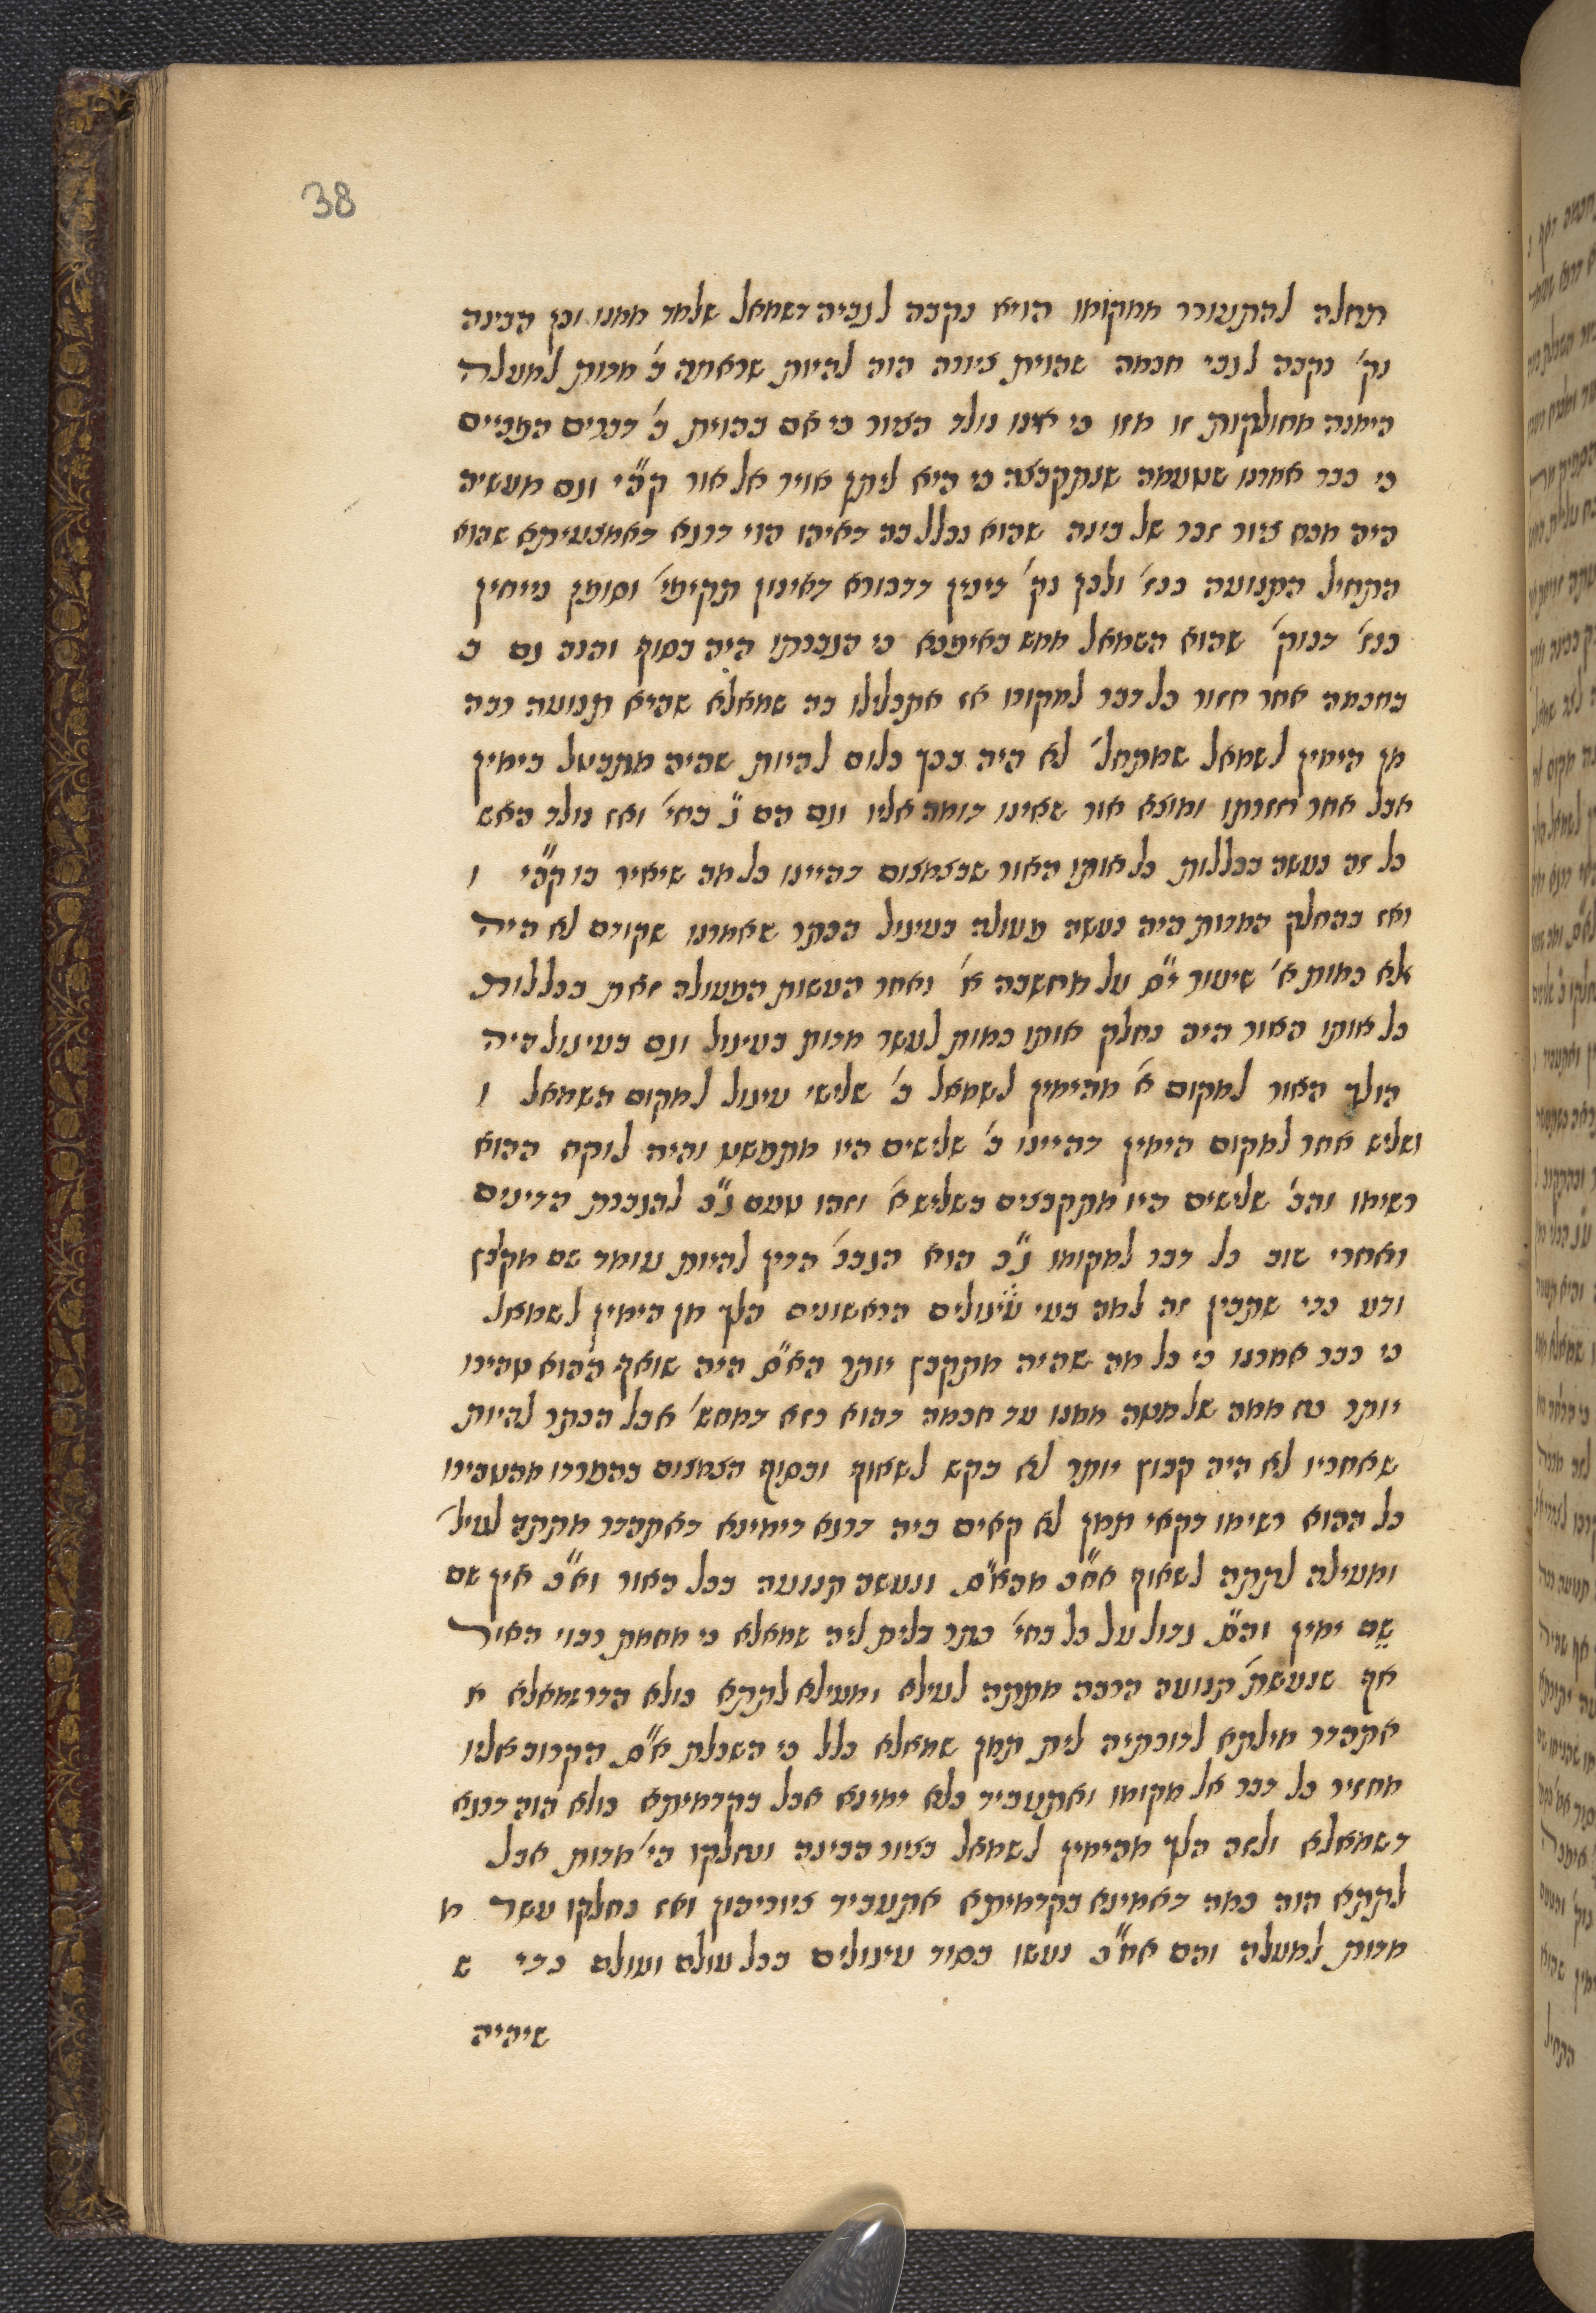 38
תחלה להתעורר ממקומו הויא נקבה לגביה דשמאל שלמד ממנו וכן הבינה
נק׳ נקבה לגבי חכמה שהוית ציורה הוה להיות שראתה ב׳ מדות למעלה
הימנה מחולקות זו מזו כי אינו נולד הציור כי אם בהוית ב׳ דברים המביים
כי כבר אמרנו שטעמה שנתקבצה כי היא ליתן אויר אל אור ק״הי וגם מעשיה
היה מכח ציור זכר של בינה שהוא נכלל בה דאיהו הוי דרגא דאמצעיתא שהוא
התחיל התנועה כנז׳ ולכן נק׳ דינין דדכורא דאינון תקיפי׳ וסופן נייחין
כנז׳ דנוק׳ שהוא השמאל ממש באימא כי הגברתו היה בסוף והנה גם ב
בחכמה אחר חזור כל דבר למקומו אז אתכלילו בה שמאלא שהיא תנועה רבה
מן הימין לשמאל שמתחל׳ לא היה בכך כלום להיות שהיה מתבטל בימין
אבל אחר חזרתו ומוצא אור שאינו דומה אליו וגם הם נ״ בחי׳ ואז נולד האש
כל זה נעשה בכללות כל אותו האור שבצמצום דהיינו כל מה שיאיר בו ק״הי ו
ואז בהחלק המדות היה נעשה פעולה בעיגול הכתר שאמרנו שקודם לא היה
אלא כמות א׳ שיעור י״ם על מחשבה א׳ ואחר העשות הפעולה זאת בכללות
כל אותו האור היה נחלק אותו כמות לעשר מדות בעיגול וגם בעיגול היה
הולך האור למקום א׳ מהימין לשמאל ב׳ שלישי עיגול למקום השמאל ו
ושליש אחר למקום הימין דהיינו ב׳ שלישים היו מתפשט והיה לוקח ההוא
רשימו והב׳ שלישים היו מתקבצים בשליש א׳ וזהו טעם נ״כ להגברת הדינים
ואחרי שוב כל דבר למקומו נ״כ הוא הגבר׳ הדין להיות עומד שם מקבץ
ודע כדי שתבין זה למה בעי עיגולים הראשונים הלך מן הימין לשמאל
כי כבר אמרנו כי כל מה שהיה מתקבץ יותר הא״ס היה שואף ההוא טהירו
יותר מה שלמטה ממנו עד חכמה דהוא רזא דמחש׳ אבל הכתר להיות
שאחריו לא היה קבוץ יותר לא בקש לשאוף ובסוף הצמצום בהפרדו מהעבירו
כל ההוא רשימו דקאי תמן לא קאים ביה דרגא דימינא דאתהדר מתתא לעיל׳
ומעילה לתתה לשאוף אח״כ מהא״ס ונעשה תנועה בכל האור וא״כ אין שם
שם ימין והס״ גדול על כל בחי׳ כתר דלית ליה שמאלא כי מחמת רבוי האור
אף שנעשת׳ תנועה הרבה מתתה לעילא ומעילא לתתא כולא הדר שמאלא א
אתהדר מילתא לדוכתיה לית תמן שמאלא כלל כי השכלת א״ס הקרוב אליו
מחזיר כל דבר אל מקומו ואתעביד כלא ימינא אבל בקדמיתא כולא הוה דרגא
דשמאלא ולזה הלך מהימין לשמאל בציור הבינה ונחלקו הי׳ מדות אבל
לתתא הוה כמה דאמינא בקדמיתא אתעביד ציוריהון ואז נחלקו עשר מ
מדות למעלה והם אח״כ נעשו בסוד עיגולים בכל עולם ועולם כדי ש
שיהיה